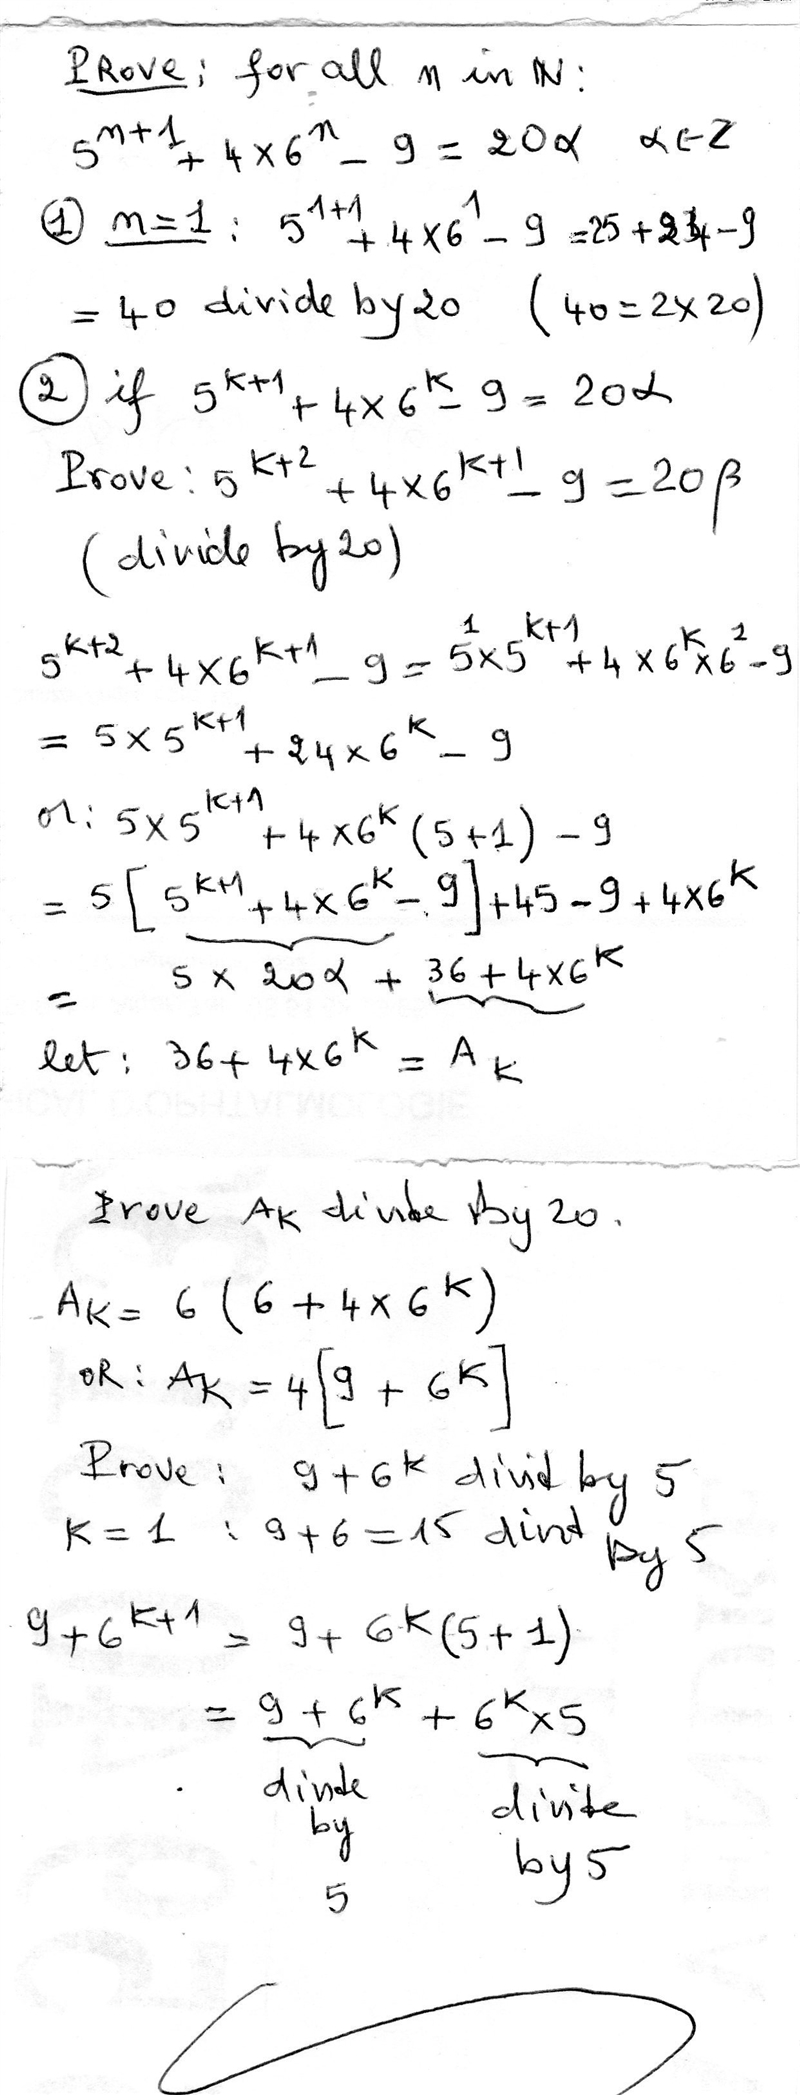 PROVE: for all n in ℕ:
5^{n+1} + 4×6^n - 9 = 20α α∈Z
① n=1: 5^{1+1} + 4×6^1 - 9 = 25 + 24 - 9
= 40 divide by 20 (40 = 2×20)
② if 5^{k+1} + 4×6^k - 9 = 20α
Prove: 5^{k+2} + 4×6^{k+1} - 9 = 20β
(divide by 20)
5^{k+2} + 4×6^{k+1} - 9 = 5^1×5^{k+1} + 4×6^k×6^1 - 9
= 5×5^{k+1} + 24×6^k - 9
or: 5×5^{k+1} + 4×6^k (5+1) - 9
= 5[5^{k+1} + 4×6^k - 9] + 45 - 9 + 4×6^k
= 5 × 20α + 36 + 4×6^k
let: 36 + 4×6^k = A_k
Prove A_K divide by 20.
A_K = 6(6 + 4×6^K)
OR: A_K = 4[9 + 6^K]
Prove: 9+6^k divid by 5
K=1 : 9+6=15 divid by 5
9+6^{K+1} = 9+6^K(5+1)
= 9+6^K + 6^K×5
divide divide
by by 5
5